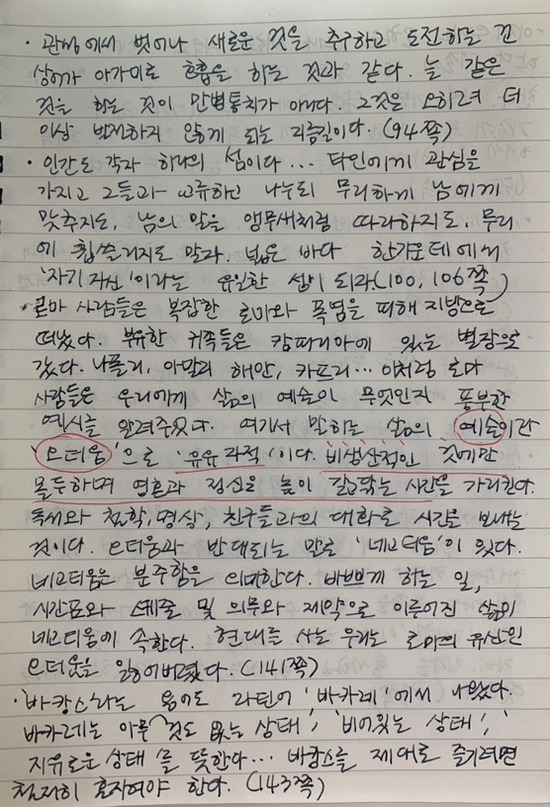 · 관성에서 벗어나 새로운 것을 추구하고 도전하는 건
상어가 아가미로 호흡을 하는 것과 같다. 늘 같은
것을 하는 것이 만병통치가 아니다. 그것은 오히려 더
이상 발전하지 않게 되는 지름길이다. (94쪽)
· 인간도 각자 하나의 섬이다... 타인에게 관심을
가지고 그들과 교류하고 나누되 무리하게 남에게
맞추지도, 남의 말을 앵무새처럼 따라하지도, 무리
에 휩쓸리지도 말라. 넓은 바다 한가운데에서
'자기 자신'이라는 유일한 섬이 되라. (100, 106쪽)
· 로마 사람들은 복잡한 로마와 폭염을 피해 지방으로
떠났다. 부유한 귀족들은 캄파니아에 있는 별장으로
갔다. 나폴리, 아말피 해안, 카프리... 이처럼 로마
사람들은 우리에게 삶의 예술이 무엇인지 풍부한
예시를 알려주었다. 여기서 말하는 삶의 예술이란
'오티움'으로 '유유자적'이다. 비생산적인 것에만
몰두하며 영혼과 정신을 높이 갈고닦는 시간을 가리킨다.
독서와 철학, 명상, 친구들과의 대화로 시간을 보내는
것이다. 오티움과 반대되는 말로 '네고티움'이 있다.
네고티움은 분주함을 의미한다. 바쁘게 하는 일,
시간표와 스케줄 및 의무와 제약으로 이루어진 삶이
네고티움에 속한다. 현대를 사는 우리는 로마의 유산인
오티움을 잃어버렸다. (141쪽)
· '바캉스'라는 용어도 라틴어 '바카레'에서 나왔다.
바카레는 '아무것도 없는 상태', '비어있는 상태',
'자유로운 상태'를 뜻한다... 바캉스를 제대로 즐기려면
철저히 혼자여야 한다. (143쪽)